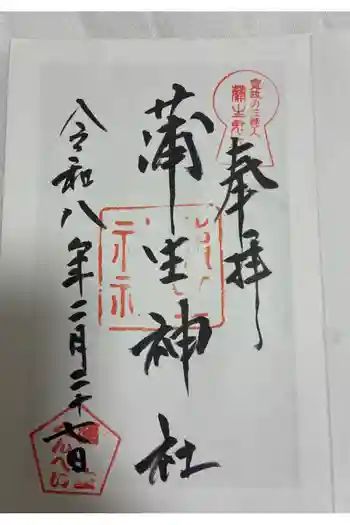 奉拝
寛政の三奇人
蒲生君
蒲生神社
令和八年二月二十七日